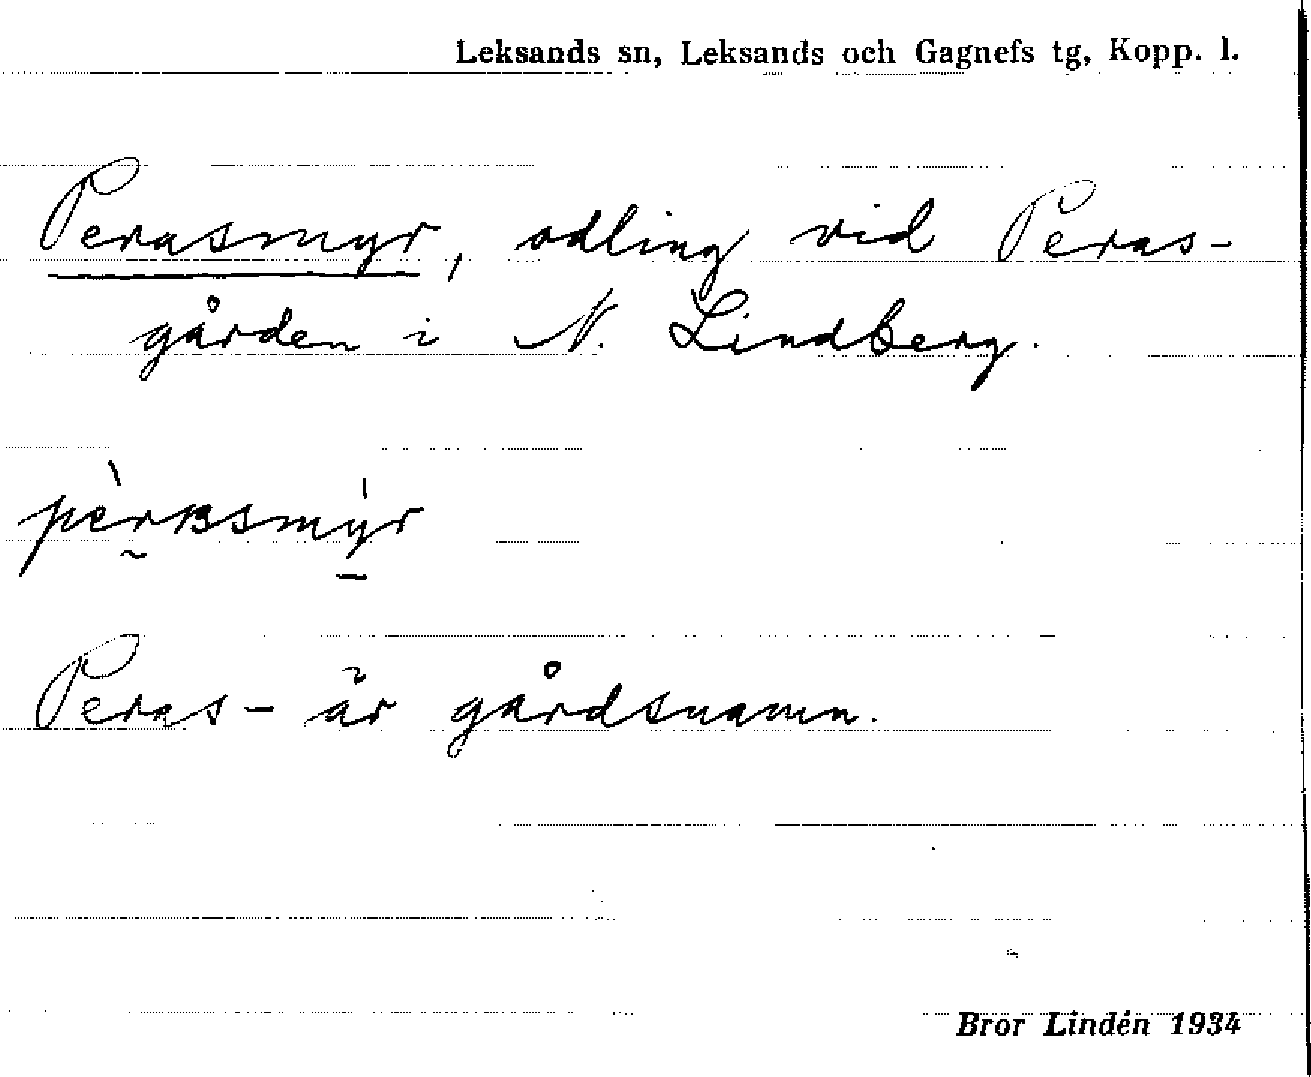 Leksands sn, Leksands och Gagnefs tg, Kopp. l.
Perasmyr, odling vid Peras-
gården i N. Lindberg.
Peras- är gårdsnamn.
Bror Lindén 1934